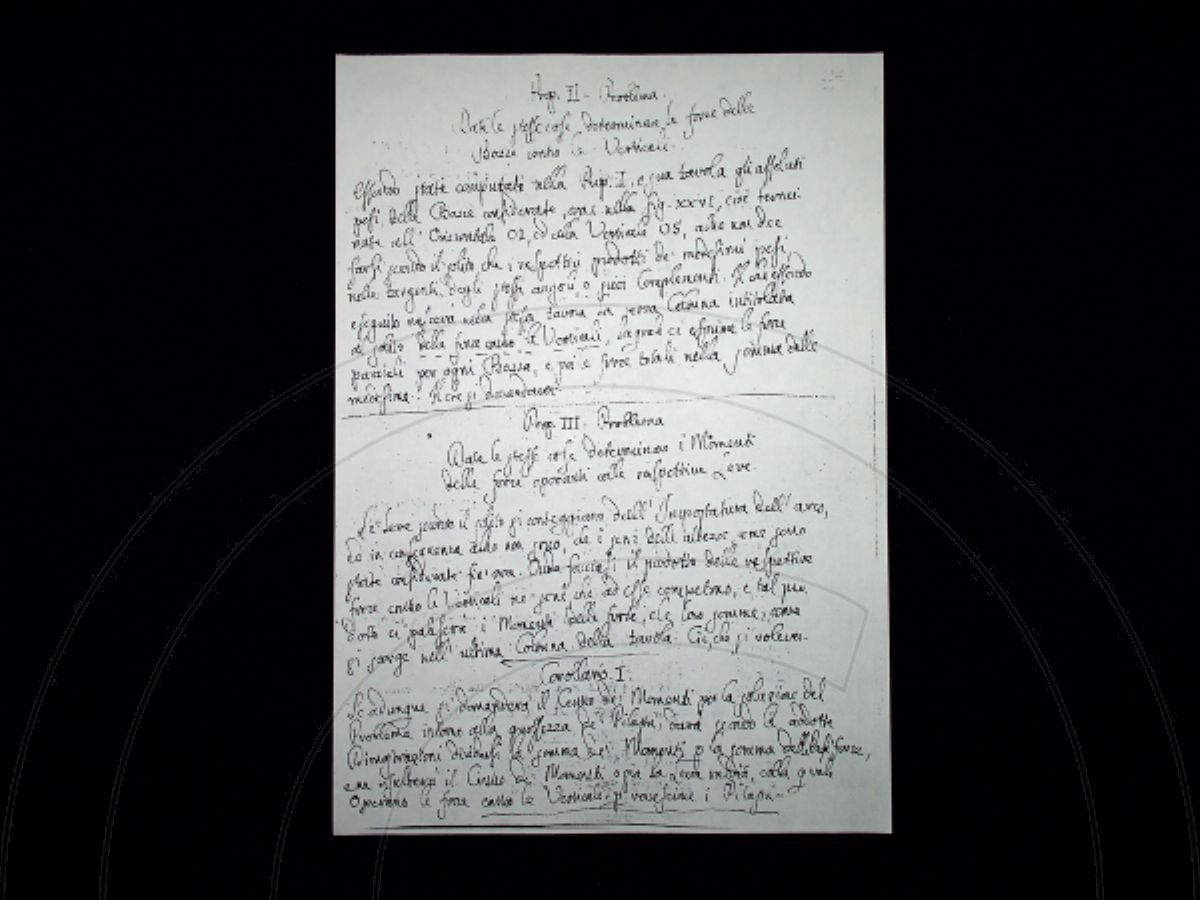 Prop. II - Problema.
Date le stesse cose determinare le forze delle
Bozze contro le Verticali.
Essendo state computate nella Prop. I, e sua tavola gli assoluti
pesi delle Bozze considerate, come nella fig. XXVI, cioè termi-
nate all' Orizzontale O2, ed alla Verticale OS, altro non dee
farsi secondo il solito, che i respettivi prodotti de' medesimi pesi
nelle tangenti degli stessi angoli o suoi Complementi. Il che essendo
eseguito nascerà nella stessa tavola la terza Colonna intitolata
al solito delle forze contro le Verticali, la quale ci esprime le forze
parziali per ogni Bozza, e poi le forze totali nella somma delle
medesime. Il che si domandava.
Prop. III - Problema
Date le stesse cose determinare i Momenti
delle forze operanti colle respettive Leve.
Le Leve secondo il solito si conteggiano dall' Impostatura dell' arco,
ed in conseguenza altro non sono, che i seni delle altezze, come sono
state considerate fin' ora. Onde facciasi il prodotto delle respettive
forze contro le Verticali ne' seni che ad esse competono, e tal pro-
dotto ci paleserà i Momenti delle forze, e le loro somme, come
si scorge nell' ultima Colonna della tavola. Ciò, che si voleva.
Corollario I.
Se adunque si domanderà il Centro de' Momenti per la soluzione del
Problema intorno alla grossezza de' Pilastri, dovrà secondo le addotte
Dimostrazioni dividersi la somma dei Momenti p la somma delle forze,
e ne risulterà il Centro de' Momenti o sia la Leva media, colla quale
Operano le forze contro le Verticali p rovesciare i Pilastri